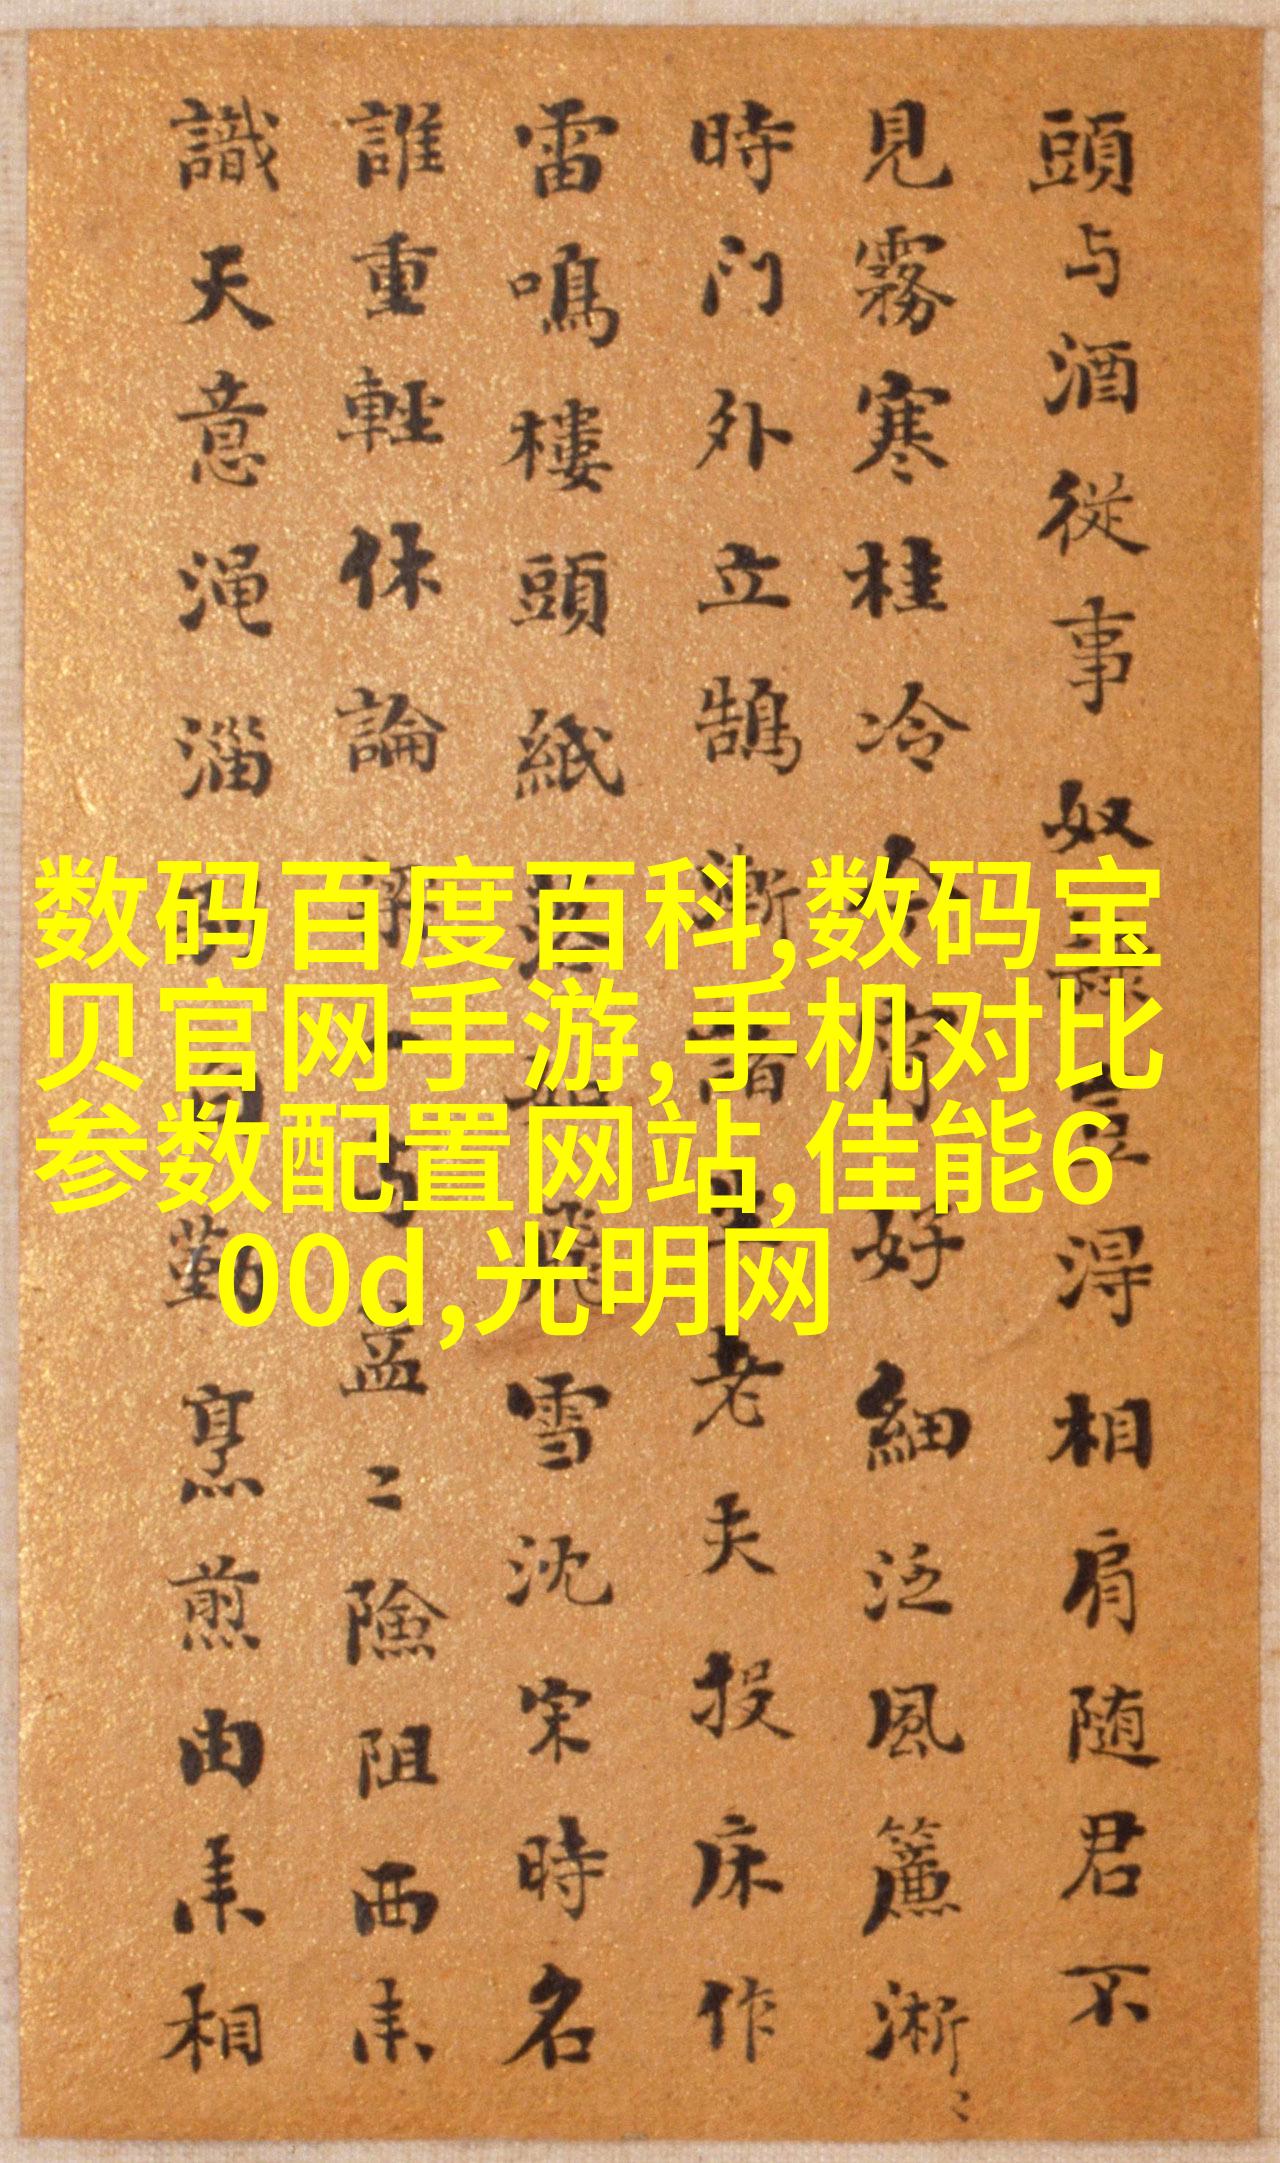 頭与酒從事奴淂相肩随君不
見霧寒桂冷好細泛風簾淅〻
時门外立鵠漸諸生老夫投床作
雷鳴樓頭紙落飛雪沈宋時名
誰重輕休論孟〻險阻西来
識天意渑淄勤烹煎由来相
数码百度百科,数码宝
贝官网手游,手机对比
参数配置网站,佳能6
00d,光明网